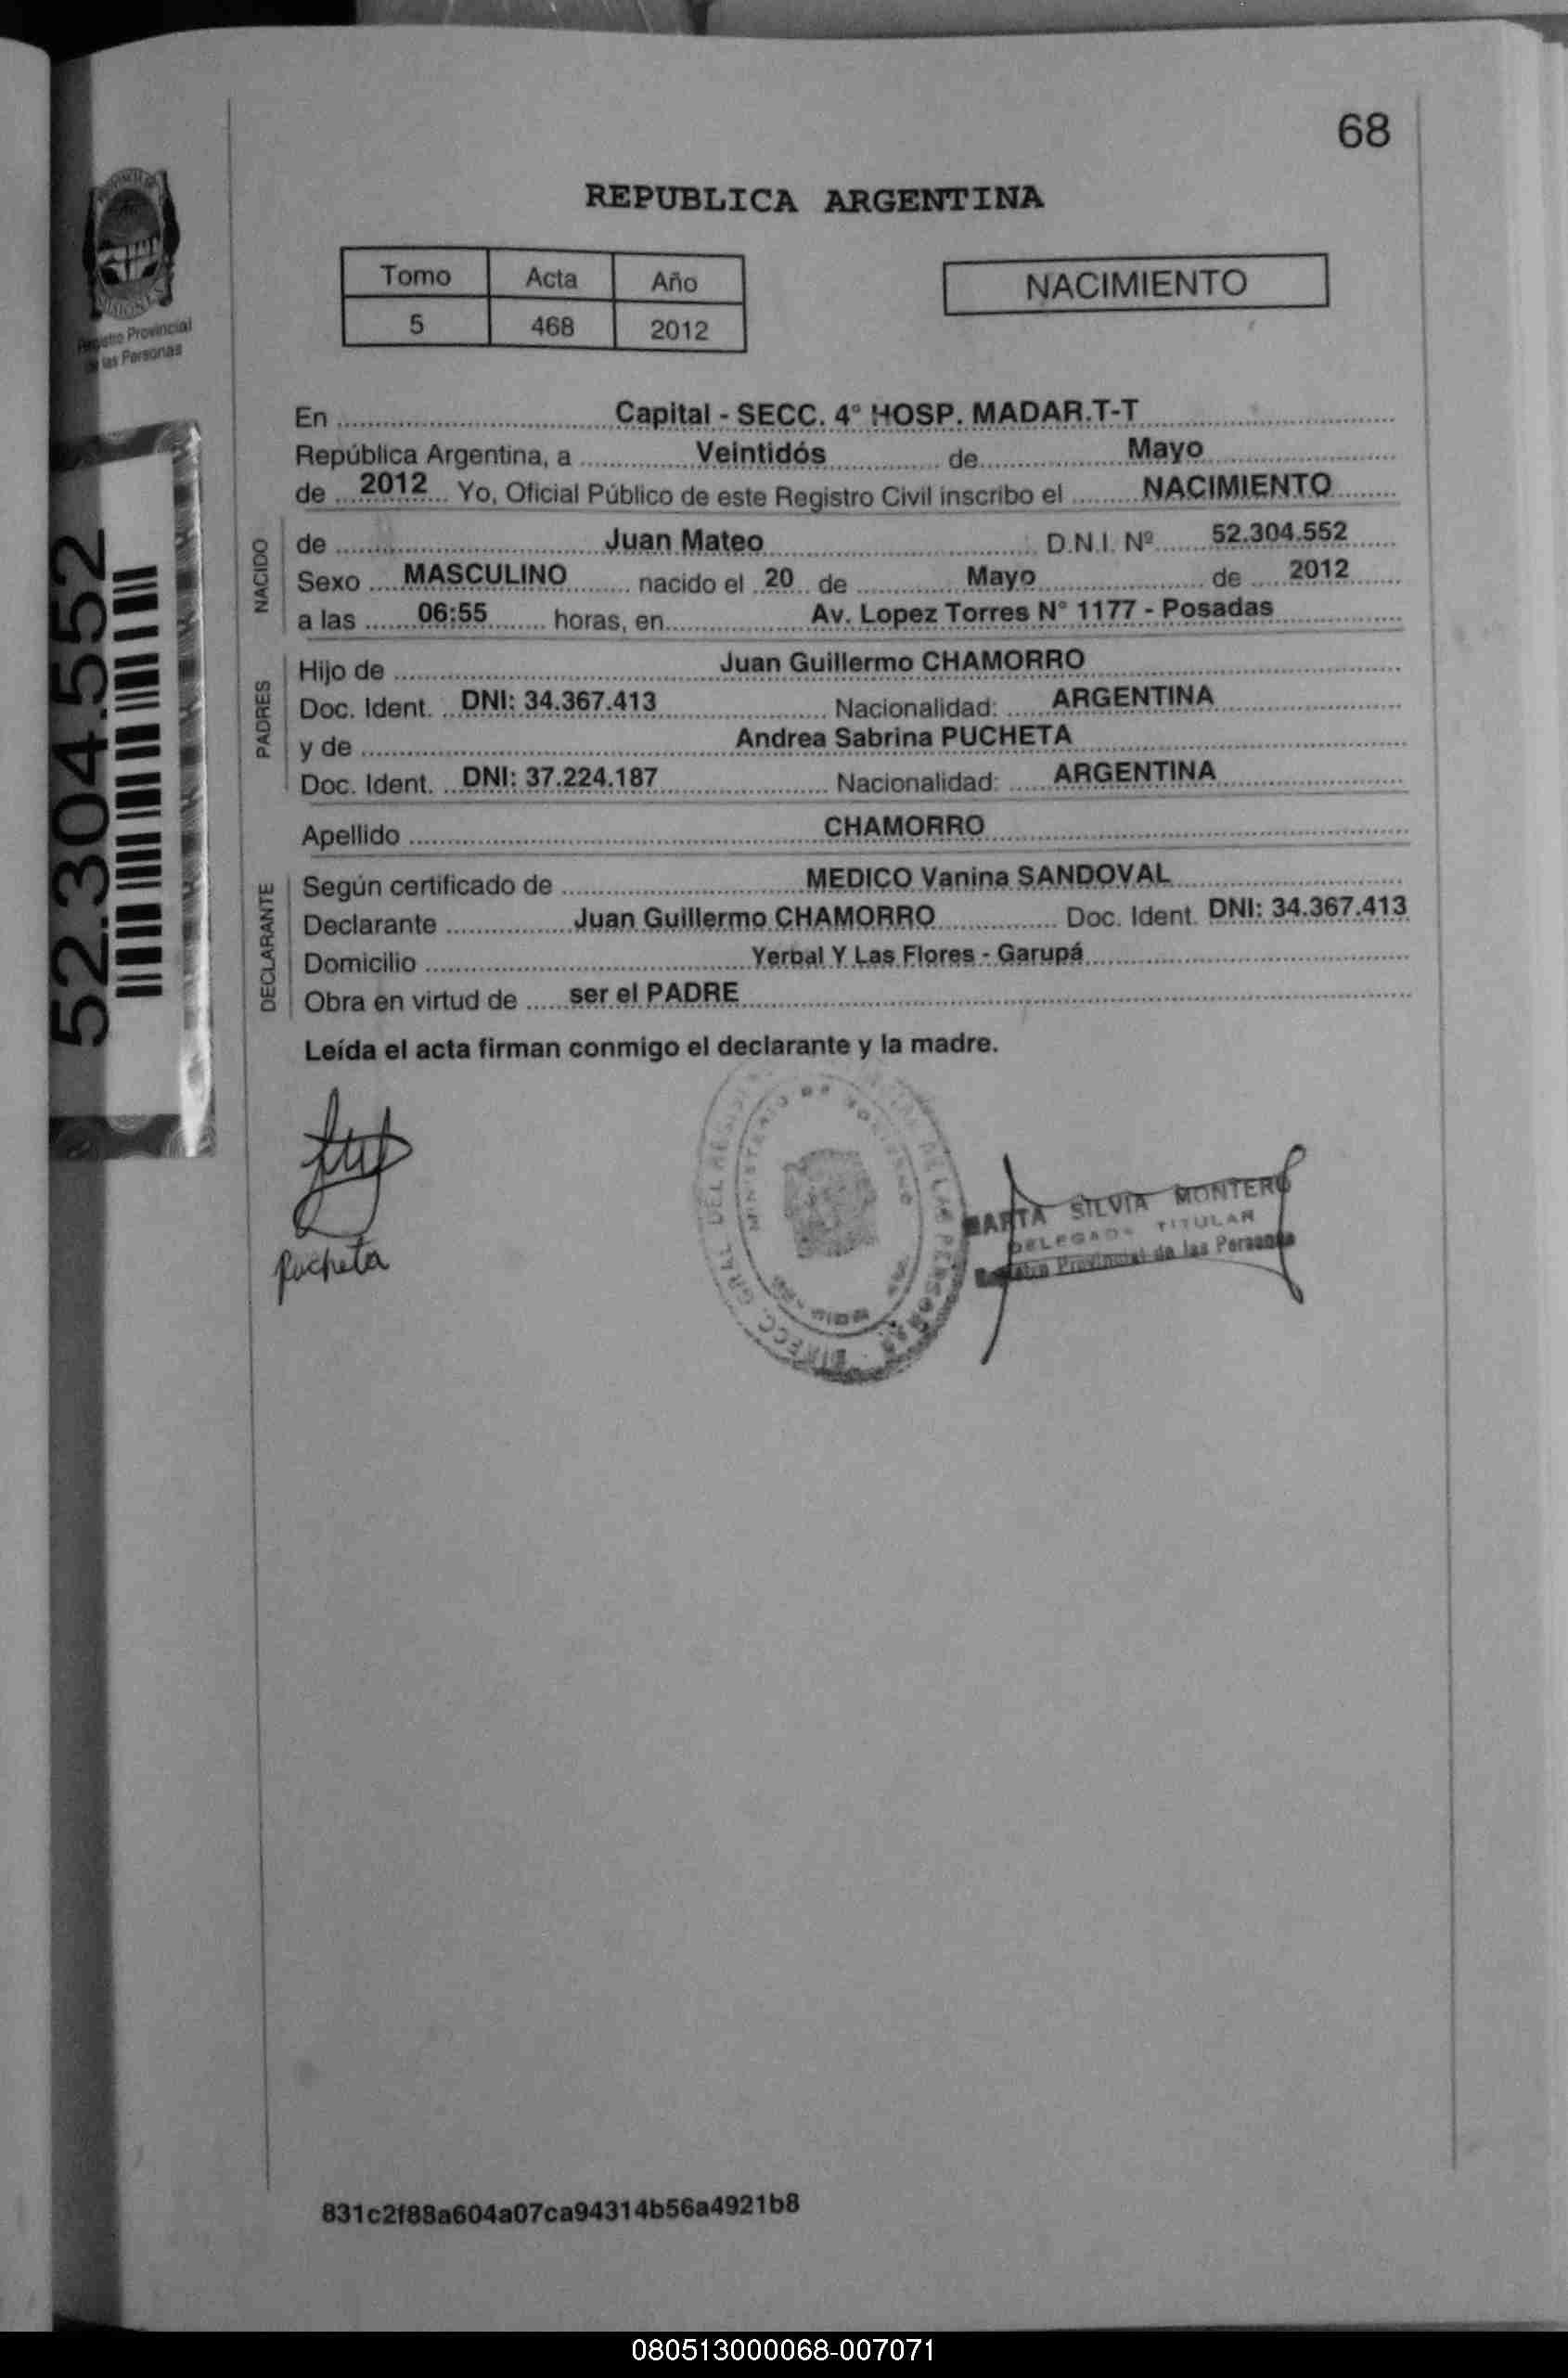 68
REPUBLICA ARGENTINA
Tomo Acta Año
5 468 2012
NACIMIENTO
Registro Provincial
de las Personas
52.304.552
En Capital - SECC. 4° HOSP. MADAR.T-T
República Argentina, a Veintidós de Mayo
de 2012 Yo, Oficial Público de este Registro Civil inscribo el NACIMIENTO
NACIDO
de Juan Mateo D.N.I. Nº 52.304.552
Sexo MASCULINO nacido el 20 de Mayo de 2012
a las 06:55 horas, en Av. Lopez Torres N° 1177 - Posadas
PADRES
Hijo de Juan Guillermo CHAMORRO
Doc. Ident. DNI: 34.367.413 Nacionalidad: ARGENTINA
y de Andrea Sabrina PUCHETA
Doc. Ident. DNI: 37.224.187 Nacionalidad: ARGENTINA
Apellido CHAMORRO
DECLARANTE
Según certificado de MEDICO Vanina SANDOVAL
Declarante Juan Guillermo CHAMORRO Doc. Ident. DNI: 34.367.413
Domicilio Yerbal Y Las Flores - Garupá
Obra en virtud de ser el PADRE
Leída el acta firman conmigo el declarante y la madre.
Pucheta
MARTA SILVIA MONTERO
DELEGADA TITULAR
Registro Provincial de las Personas
831c2f88a604a07ca94314b56a4921b8
080513000068-007071